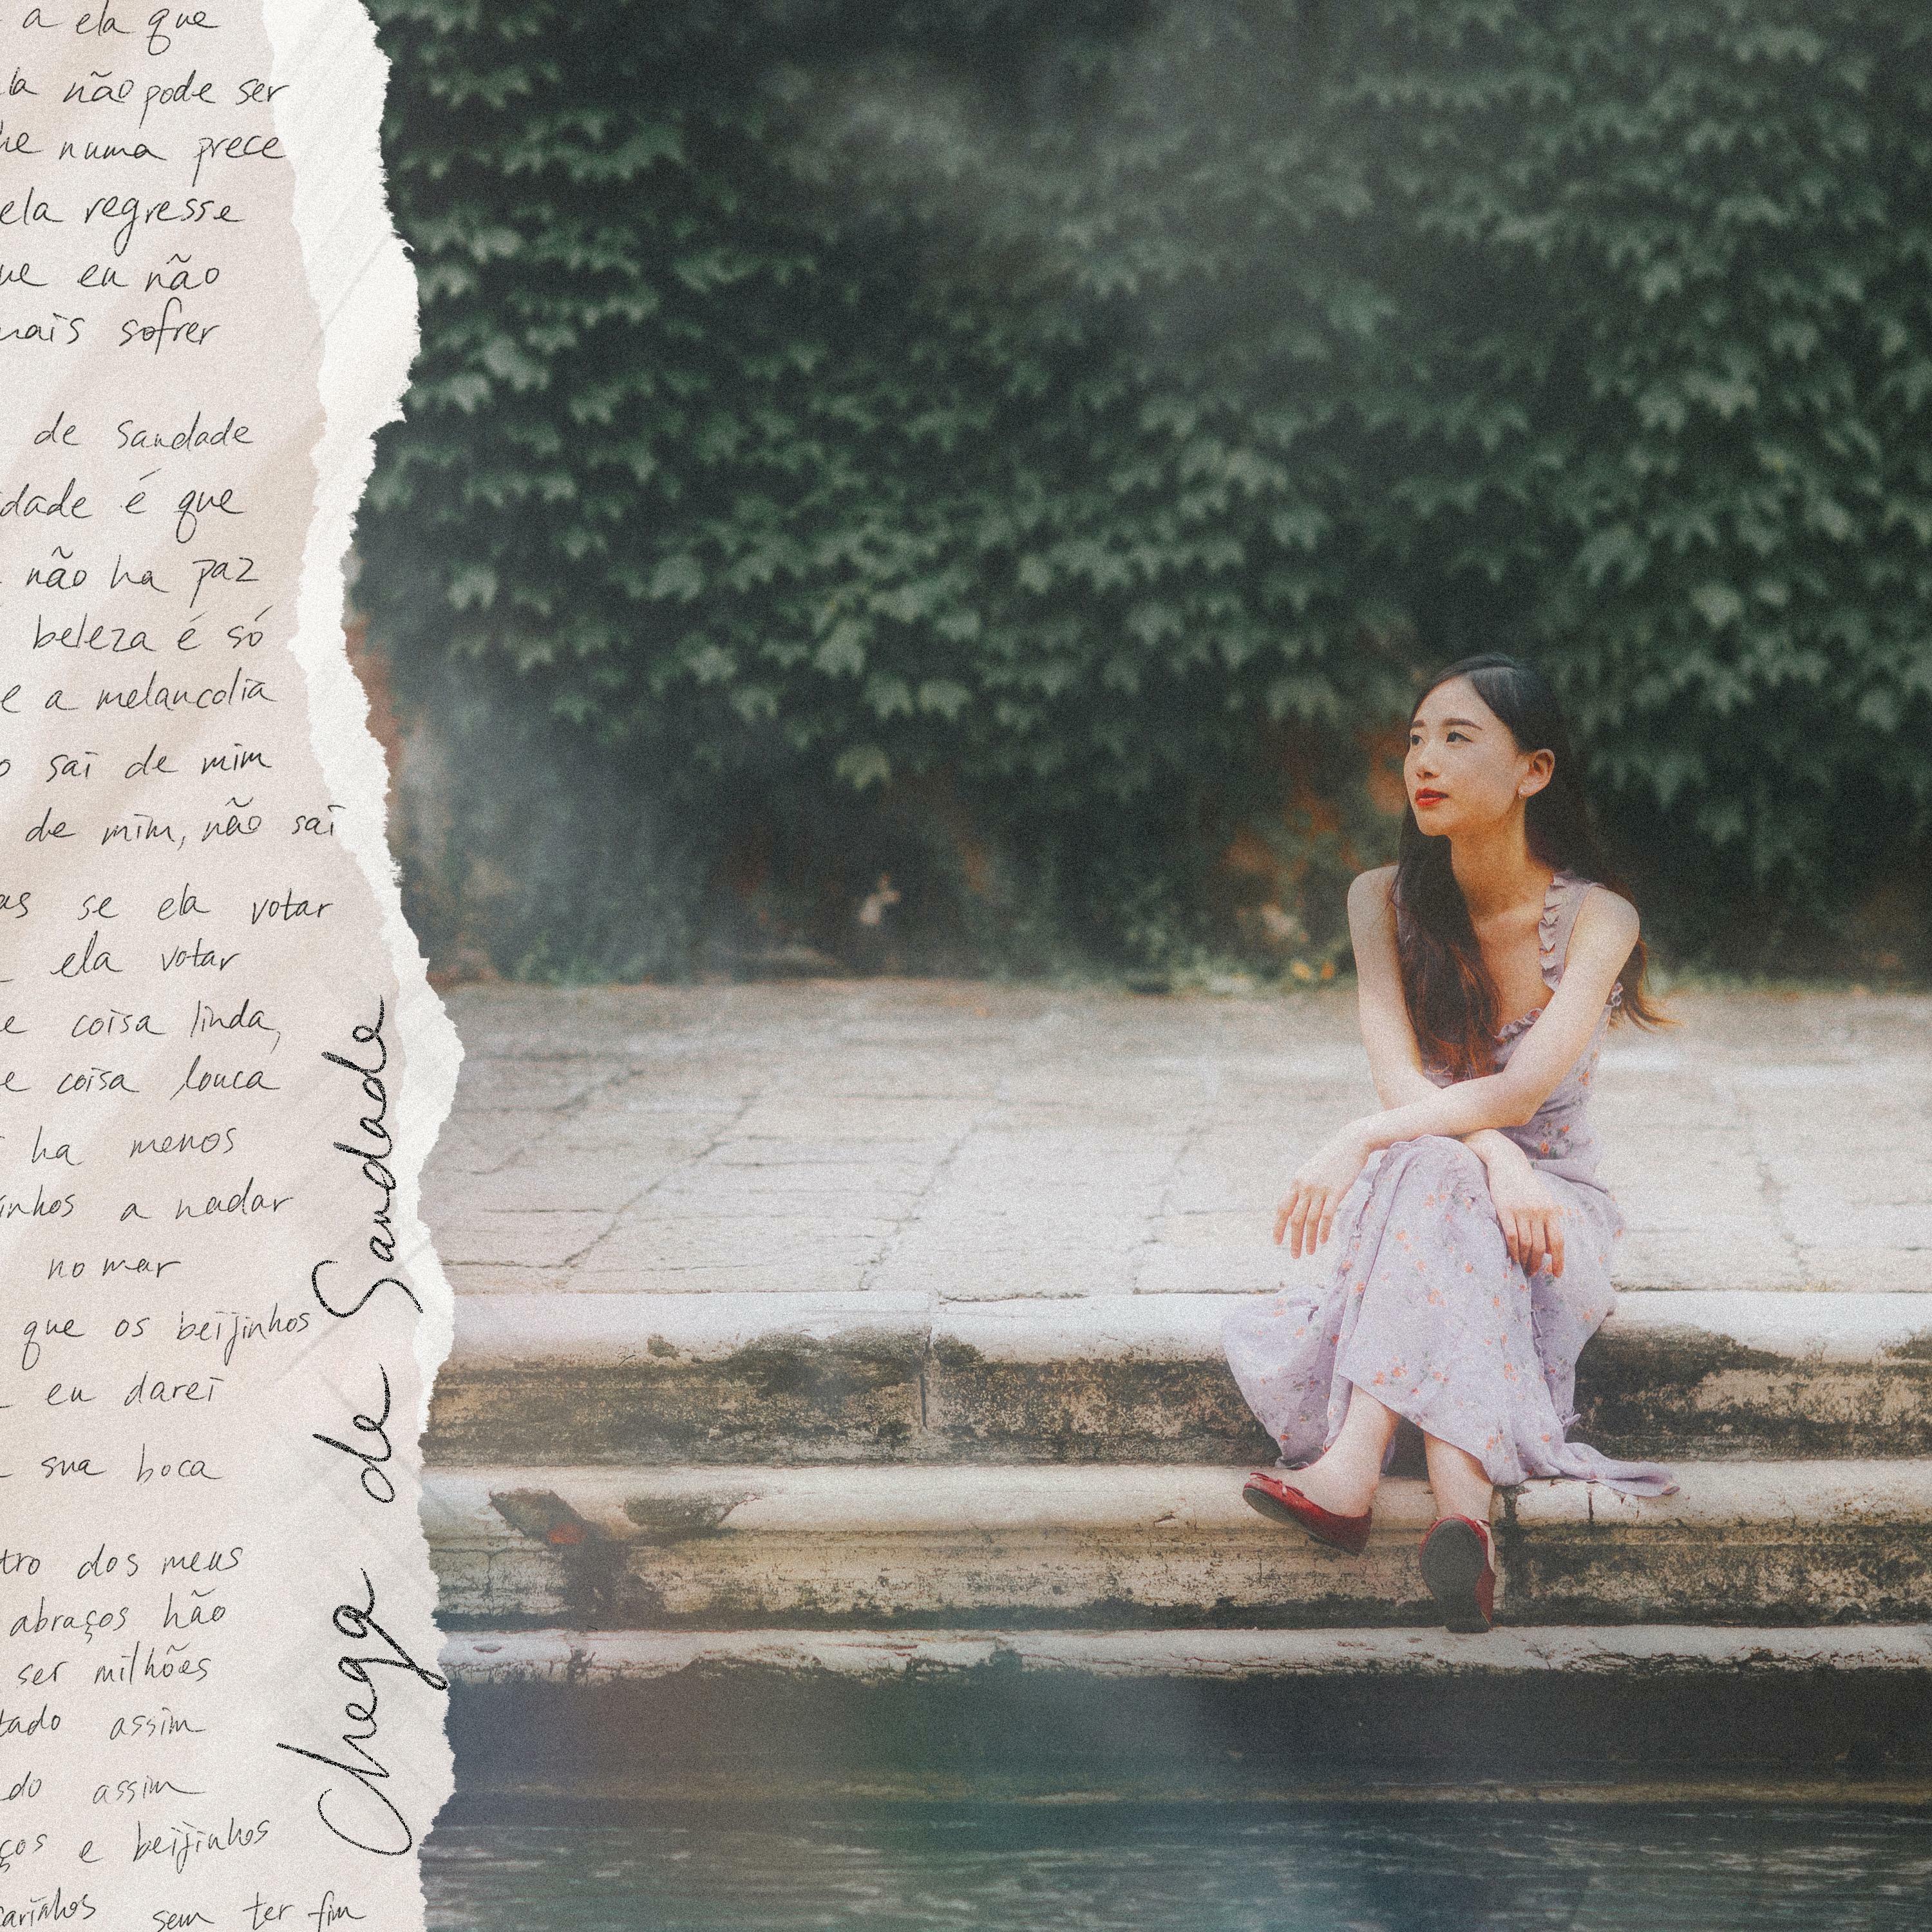 a ela que
não pode ser
numa prece
ela regresse
eu não
sofrer
de Saudade
dade é que
não ha paz
beleza é só
e a melancolia
o sai de mim
de mim, não sai
as se ela votar
ela votar
e coisa linda,
e coisa louca
ha menos
inhos a nadar
no mar
que os beijinhos
eu darei
sua boca
tro dos meus
abraços hão
ser milhões
tado assim
do assim
ços e beijinhos
carinhos sem ter fim
Chega de Saudade